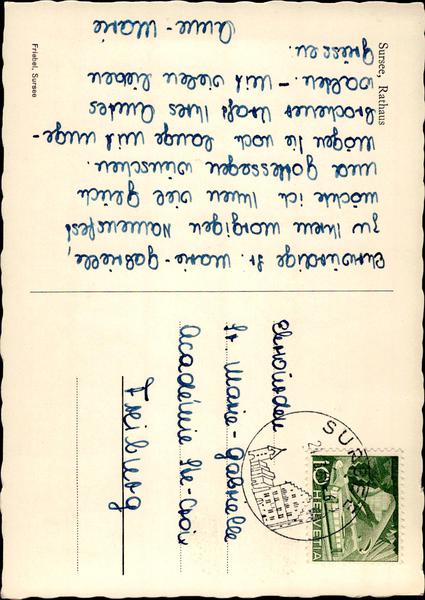 Ehrwürdige Sr. Marie-Gabrielle,
zu Ihrem morgigen Namensfest
möchte ich Ihnen viel Glück
und Gottessegen wünschen.
Mögen Sie noch lange mit unge-
brochener Kraft Ihres Amtes
walten. – Mit vielen lieben
Grüssen.
Anne-Marie
Sursee, Rathaus
Friebel, Sursee
Ehrwürden
Sr. Marie-Gabrielle
Académie Ste-Croix
Freiburg
SURSEE
10
HELVETIA